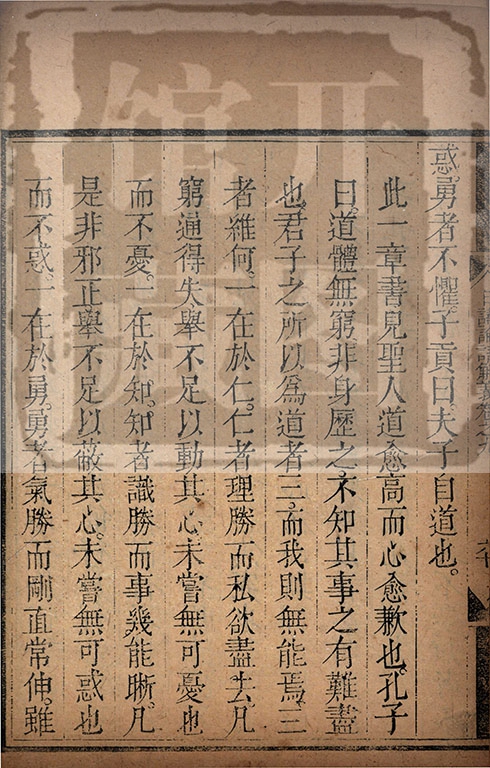 惑勇者不懼子貢曰夫子自道也。
此一章書見聖人道愈高而心愈歉也。孔子
曰。道體無窮。非身歷之不知其事之有難盡
也。君子之所以爲道者三。而我則無能焉。三
者維何。一在於仁。仁者理勝而私欲盡去。凡
窮通得失舉不足以動其心。未嘗無可憂也
而不憂。一在於知。知者識勝而事幾能晰。凡
是非邪正舉不足以蔽其心。未嘗無可惑也
而不惑。一在於勇。勇者氣勝而剛直常伸。雖